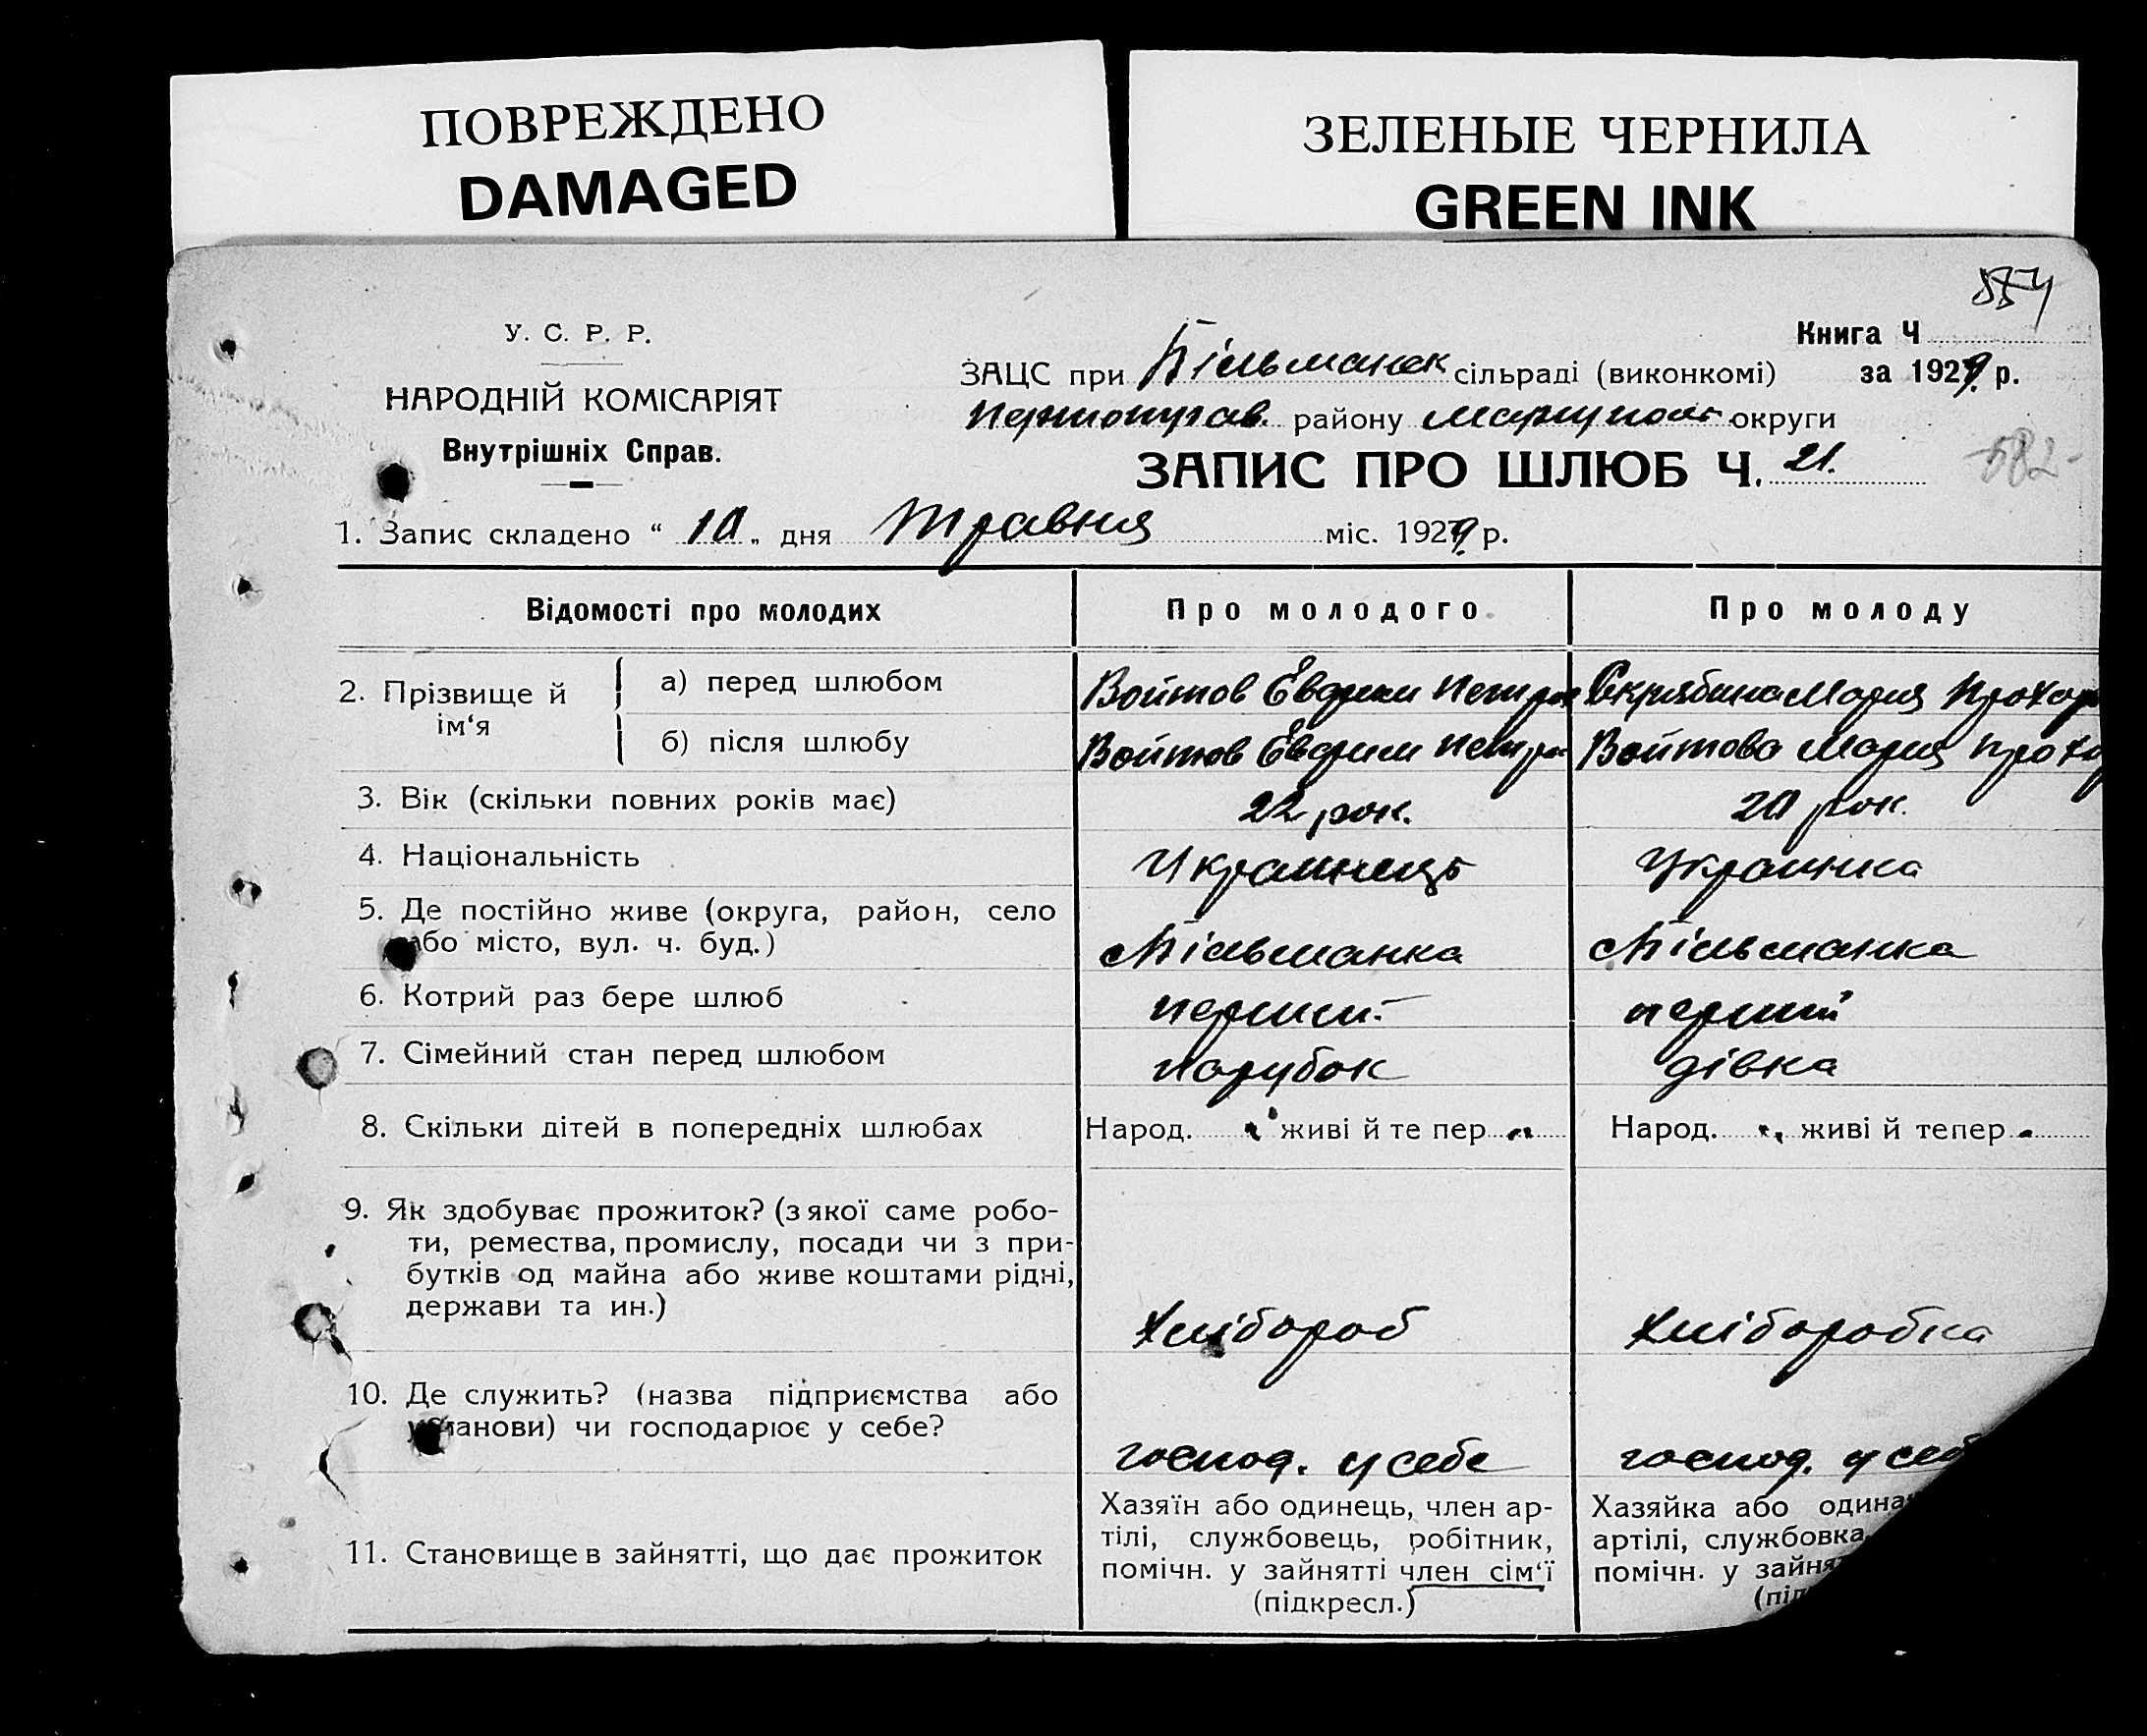 ПОВРЕЖДЕНО
DAMAGED
ЗЕЛЕНЫЕ ЧЕРНИЛА
GREEN INK
У. С. Р. Р.
НАРОДНІЙ КОМІСАРІЯТ
Внутрішніх Справ.
Книга Ч
ЗАЦС при Більманск сільраді (виконкомі) за 1929 р.
району Маріупол округи
ЗАПИС ПРО ШЛЮБ Ч. 21.
582
1. Запис складено “ 10 „ дня Травня міс. 1929 р.
Відомості про молодих
Про молодого
Про молоду
2. Прізвище й ім‘я
а) перед шлюбом
Войтов Евфим Петров
Скрябина Мария Прохор
б) після шлюбу
Войтов Евфим Петров
Войтова Мария Прохор
3. Вік (скільки повних років має)
22 рок.
20 рок.
4. Національність
Украинець
Украинка
5. Де постійно живе (округа, район, село
або місто, вул. ч. буд.)
с Більманка
с Більманка
6. Котрий раз бере шлюб
перший
перший
7. Сімейний стан перед шлюбом
парубок
дівка
8. Скільки дітей в попередніх шлюбах
Народ. живі й те пер
Народ. живі й тепер
9. Як здобуває прожиток? (з якої саме робо-
ти, ремества, промислу, посади чи з при-
бутків од майна або живе коштами рідні,
держави та ин.)
хлібороб
хліборобка
10. Де служить? (назва підприємства або
установи) чи господарює у себе?
господ. у себе
господ. у себ
11. Становище в зайнятті, що дає прожиток
Хазяїн або одинець, член ар-
тілі, службовець, робітник,
помічн. у зайнятті член сім‘ї
(підкресл.)
Хазяйка або одина
артілі, службовка
помічн. у зайня
(під